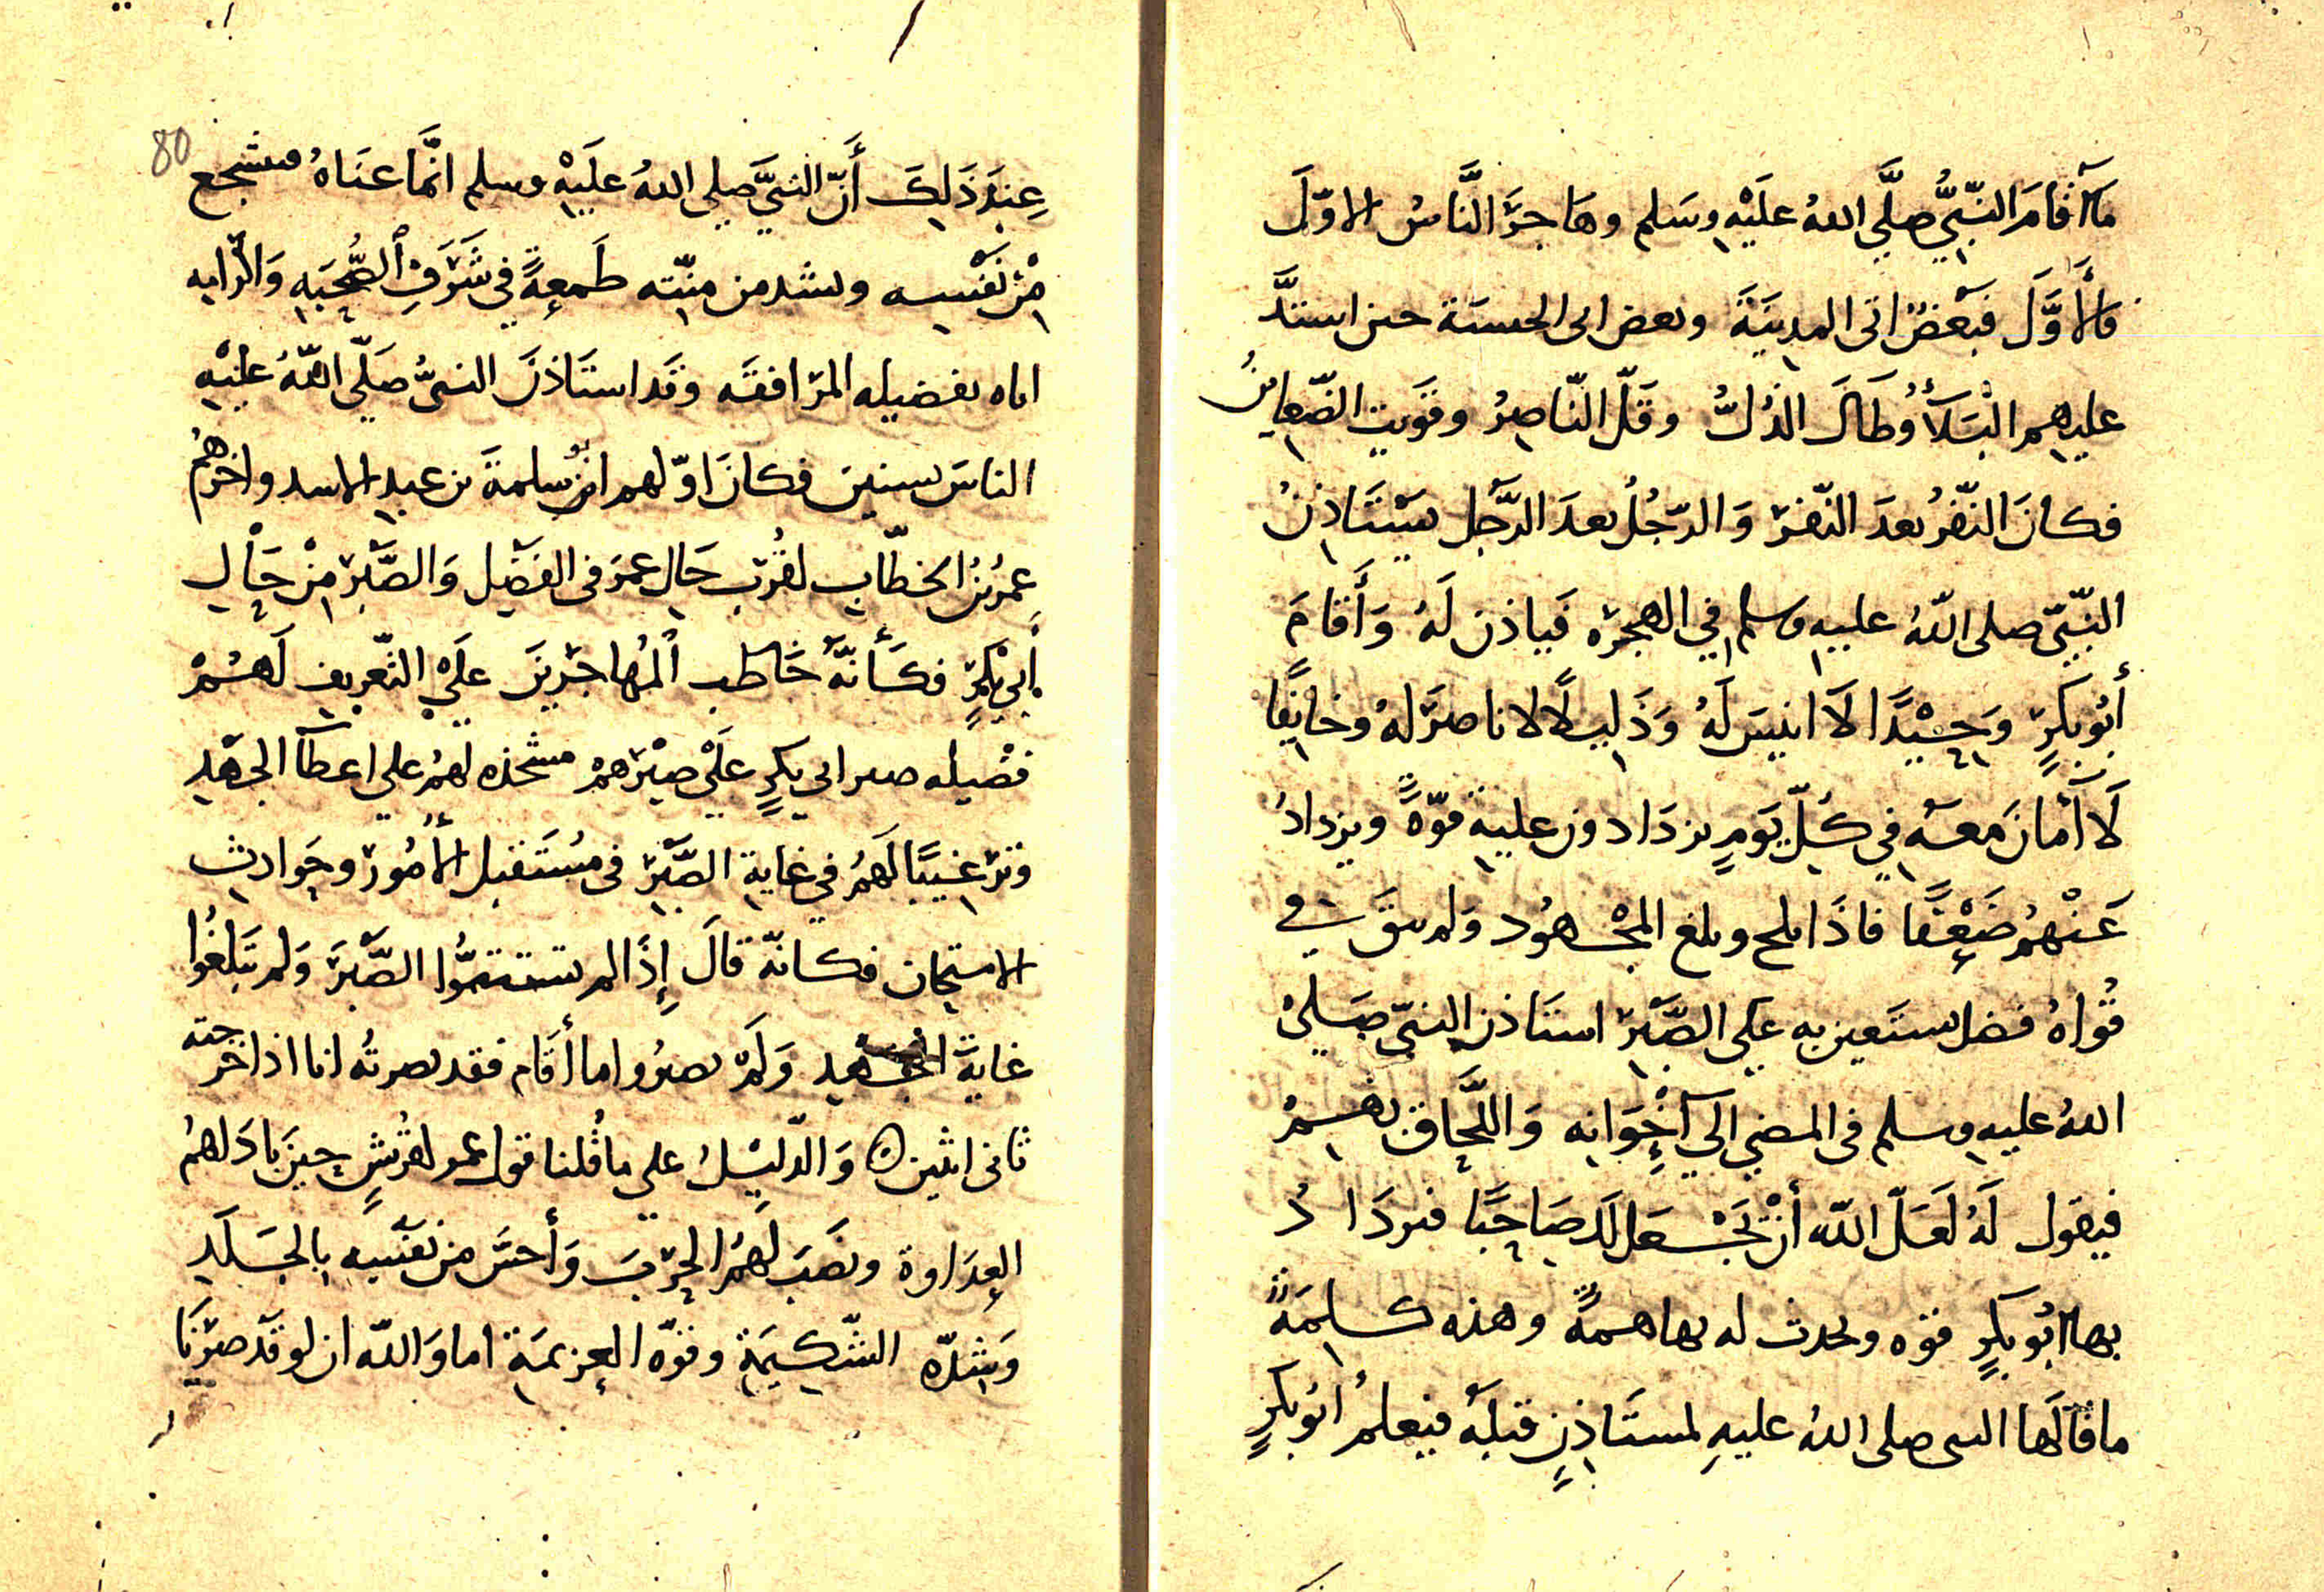 ما اقام النَّبِيُّ صلَّي اللهُ عليْهِ وسَلم وهَاجرَ النَّاسُ الاوّلَ
فالأوَّلَ فبَعْضٌ اتى المدِينَةَ وبعض اتى الحبشة حين اشتدَّ
عليهِم الْبَلآءُ وطَالَ الذُلُّ وقَلّ النّاصِرُ وقوِيت الضّعاينُ
فكانَ النّفرُ بعدَ النّفرْ وَالرّجُلُ بعدَ الرَّجُل يَسْتَاذِنُ
النّبيّ صلى اللّهُ عليهِ وسلم في الهجرَه فَياذن لَهُ وَأَقامَ
أَبُو بَكرٍ وَحِيْدًا لَا انيسَ لَهُ وَذَلِيلًا لا ناصرَ لهُ وخايِفًا
لَا آمَانَ معَهُ في كُلّ يَومٍ يزدَادون عليهِ قوّةً ويزدادُ
عَنْهُم ضَعْفًا فاذَا بلح وبلغ المجْهُود وَلم يبقَ في
قُوَاهُ فضل يستَعين به علي الصَّبْر استَاذن النبيّ صَلي
اللهُ عليهِ وسلم في المضي الي اخْوَانِه وَاللَّحَاقِ بهِمُ
فيقول لَهُ لَعَلّ اللّه أنْ يَجْعَل لَك صَاحِبًا فيزدَادُ
بها ابُو بكرٍ قوّه ويحدث له بها همةً وهذه كلِمَةٌ
ما قالَها النبى صلى اللهُ عليهِ لمستَاذِنٍ قبلَهُ فيعلمُ ابُو بكرٍ
80
عِنِدَ ذَلِكَ أَنّ النبيَّ صلي اللهُ علَيْهِ وسلم انَّما عنَاهُ فيشجع
مِنْ نَفْسِه ويشد من منّته طَمعهً في شَرَفِ الصُّحْبَهِ وَالرايه
اياه بفضيله المرَافقَه وقَد استَاذنَ النبىَّ صَلّي اللّهُ علَيْهِ
الناسَ سنينَ فكانَ اوّلهم ابُو سلمةَ بن عبدِ الاسد واخرهُم
عمرُ بنُ الخطّاب لقُربِ حَالِ عمرَ في الفَضْل وَالصَّبْر مِنْ حَالِ
أَبي بَكرٍ فكَأنَّهُ خَاطب المُهاجرينَ علَي التّعْرِيف لَهُمْ
فضْيله صبر ابي بكرٍ علَي صبْرهمْ مشحذه لهمُ علي اعطآ الجهْد
وترْغيبًا لَهمُ في غايةِ الصَّبْر في مُستَقبل الأمُور وحَوادِث
الامتحان فكانّه قالَ إذَا لم تستتمُّوا الصَّبْرَ وَلم تبلُغُوا
غايةَ الجهد وَلَم تصبرُوا ما أقَام فقد بصرتُه انا اذا خرجته
ثاني اثنين ه وَالدّليْلُ علي ما قُلنا قول عمر لقُرَيشٍ حِينَ بادَاهمُ
العِدَاوة ونصَبَ لهمُ الحرْبَ وَأحسَّ من نفْسِه بالجَلَدِ
وَشِدّه الشّكِيمَةِ وقوّه العزِيمَةِ اما وَاللّه ان لو قَد صرْنَا